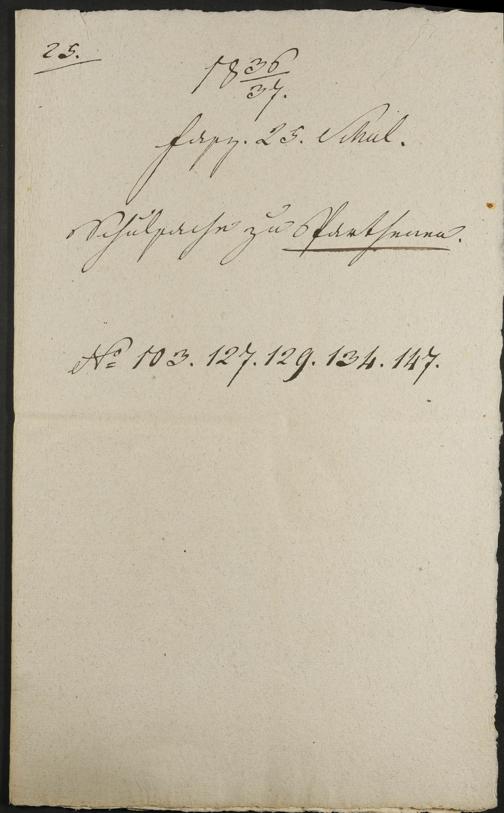 25.
18 36/37.
Fasz. 25. Schul.
Schulsache zu Parthenen.
No 103. 127. 129. 134. 147.